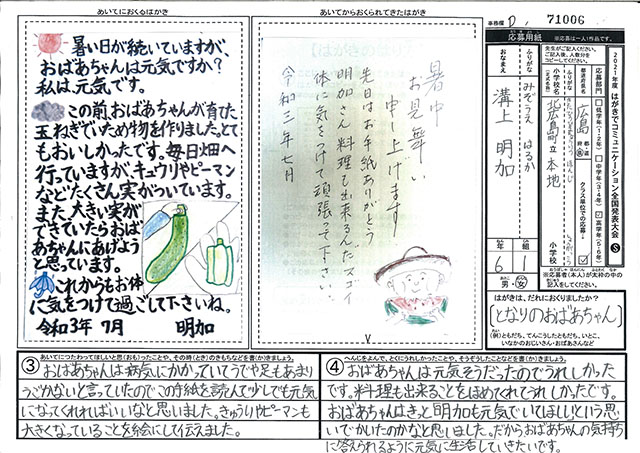 あいてにおくるはがき
暑い日が続いていますが、
おばあちゃんは元気ですか？
私は、元気です。
この前、おばあちゃんが育てた
玉ねぎでいため物を作りました。とて
もおいしかったです。毎日畑へ
行っていますが、キュウリやピーマン
などたくさん実がついています。
また、大きい実が
できていたらおば
あちゃんにあげよう
と思っています。
これからもお体
に気をつけて過ごして下さいね。
令和3年7月 明加
あいてからおくられてきたはがき
暑中
お見舞い
申し上げます
先日はお手紙ありがとう
明加さん 料理も出来るんだスゴイ
体に気をつけて頑張って下さい。
令和三年七月
事務欄
71006
応募用紙
※応募は一人1作品です。
2021年度 はがきでコミュニケーション全国発表大会
応募部門
低学年(1・2年)
中学年(3・4年)
高学年(5・6年)
都道府県名
広島
クラス単位での応募
ふりがな
小学校名
北広島町立 本地
小学校
ふりがな
みぞうえ はるか
おなまえ
溝上 明加
年 6
組 1
男・女
※応募者が太枠の中の
記入して下さい。
はがきは、だれにおくりましたか？
となりのおばあちゃん
(例)ともだち、てんこうしたともだち、いとこ、
いなかのおじいさん・おばあさんなど
③ あいてにつたわってほしいと思(おも)ったことや、その時(とき)のきもちなどを書(か)きましょう。
おばあちゃんは病気にかかっていてうでや足もあまり
うごかないと言っていたのでこの手紙を読んで少しでも元気
になってくれればいいなと思いました。きゅうりやピーマンも
大きくなっていることを絵にして伝えました。
④ へんじをよんで、とくにうれしかったことや、そうぞうしたことなどを書(か)きましょう。
おばあちゃんは元気そうだったのでうれしかった
です。料理も出来ることをほめてくれてうれしかったです。
おばあちゃんはきっと明加も元気でいてほしいという思
いでかいたのかなと思いました。だからおばあちゃんの気持ち
に答えられるように元気に生活していきたいです。